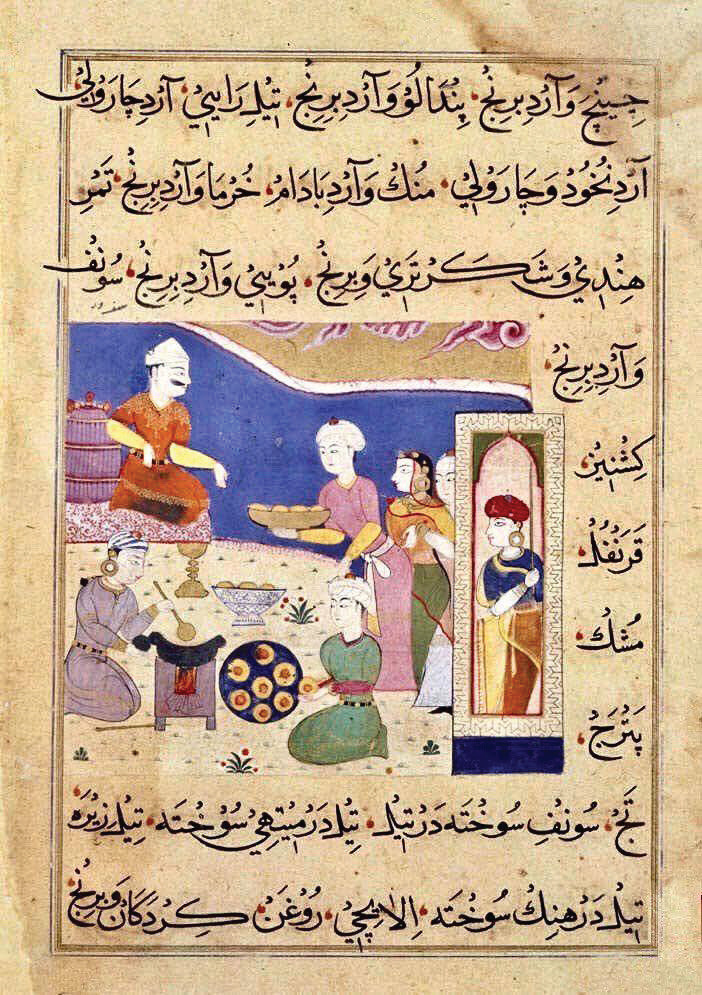 چینچ وَآردِ برنج، پِندالُو وَآردِ برنج، تیلِ رایی، آردِ چارولی،
آردِ نُخُود وَ چارولی، مُنك وَآردِ بادام، خُرما وَآردِ برنج، تَمرِ
هِندي وَ شَكَر تَري وَ بِرنج، پُویِي وَآردِ برنج، سُونف
وَآردِ برنج،
كِشنیز
قَرَنفُل،
مُشك،
پَترَج،
تَج، سُونفِ سوُختَه دَر تیل، تیل دَر میتهِي سُوختَه، تیلِ زیرَه
تیل دَر هِنك سوُختَه، اِلایچِي، رُوغَن كِردَكان وَ برِنج